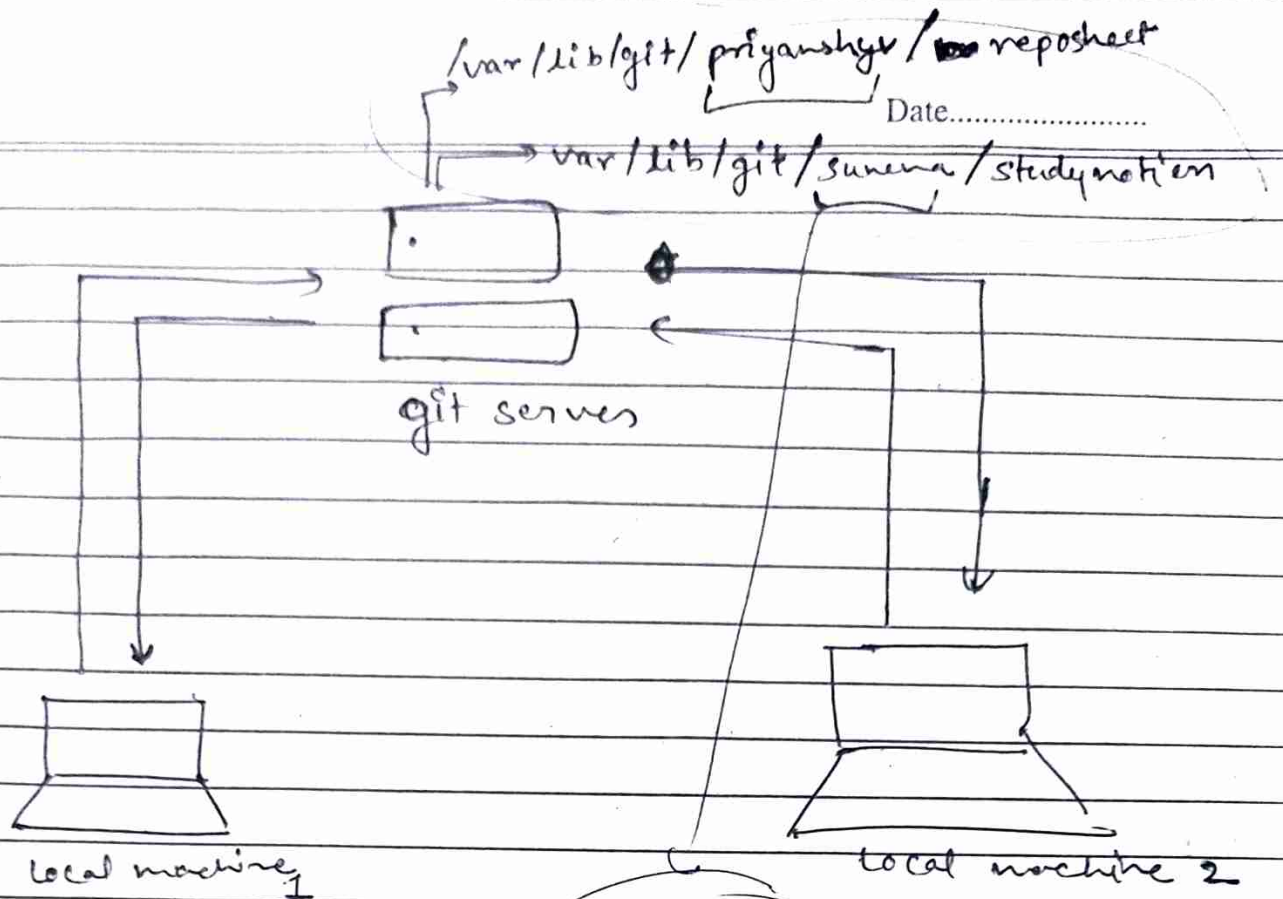 /var/lib/git/priyanshgv/reposheet
Date........................
var/lib/git/sunena/studynotion
git serves
local machine 1
local machine 2